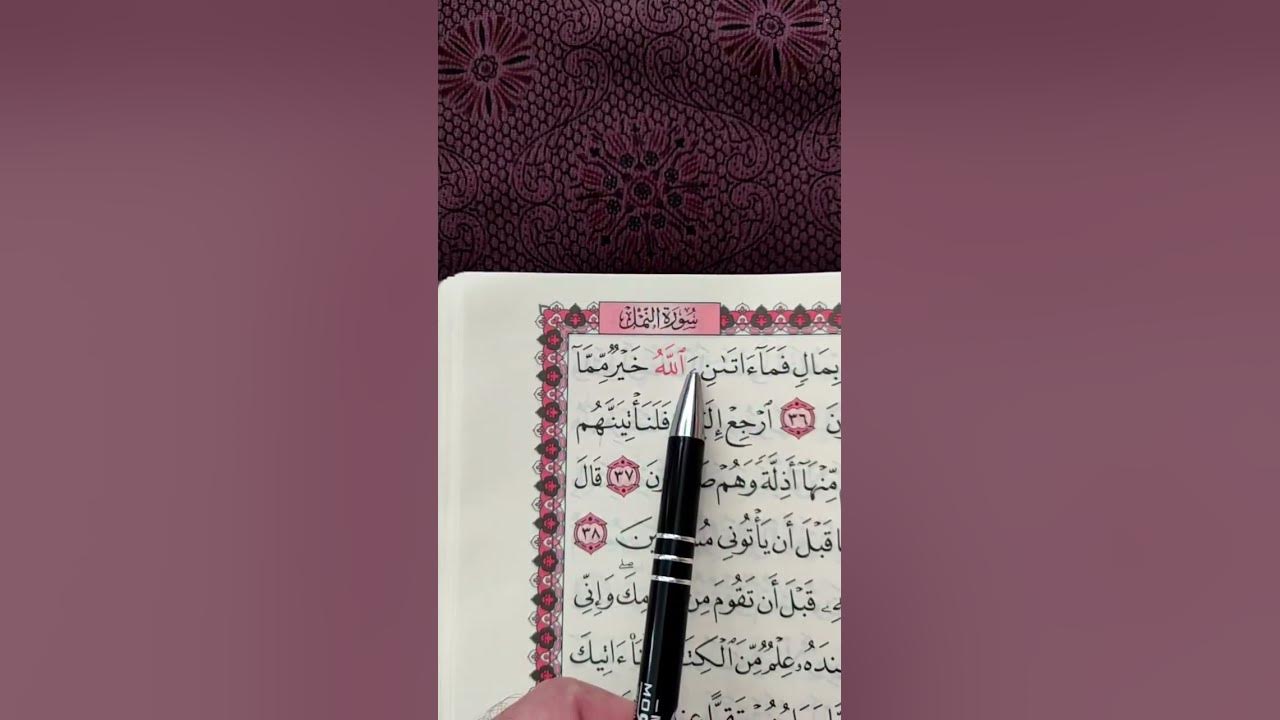 سُورَةُ النَّمْلِ
بِمَالٍ فَمَآ ءَاتَىٰنِۦَ ٱللَّهُ خَيْرٌ مِّمَّآ
نَ ٣٦ ٱرْجِعْ إِلَ فَلَنَأْتِيَنَّهُم
مِّنْهَآ أَذِلَّةً وَهُمْ صَ ونَ ٣٧ قَالَ
قَبْلَ أَن يَأْتُونِى مُسْ ينَ ٣٨
قَبْلَ أَن تَقُومَ مِن مِكَ ۖ وَإِنِّى
عِندَهُۥ عِلْمٌ مِّنَ ٱلْكِتَ أَنَا۠ ءَاتِيكَ